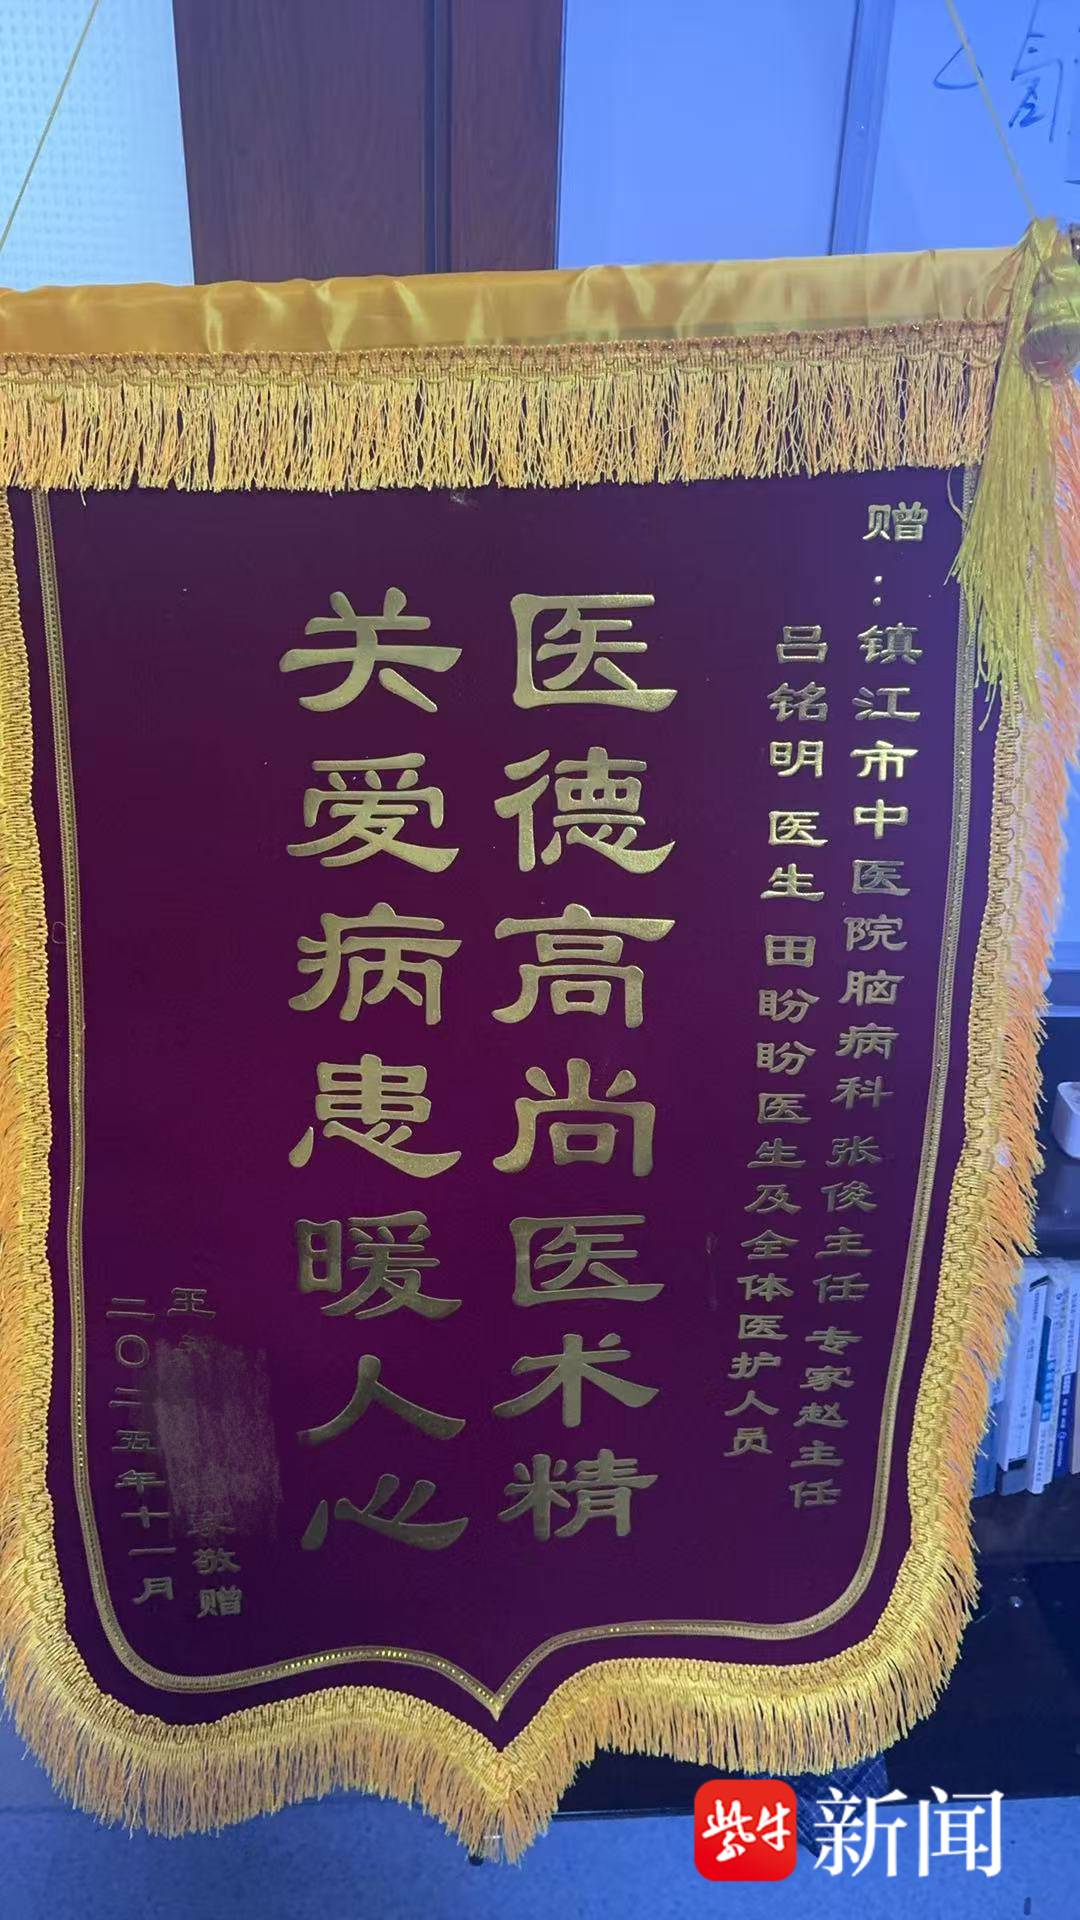 赠：镇江市中医院脑病科 张俊主任 专家赵主任
吕铭明 医生 田盼盼医生及全体医护人员
医德高尚医术精
关爱病患暖人心
王
敬赠
二〇二五年十一月
紫牛
新闻